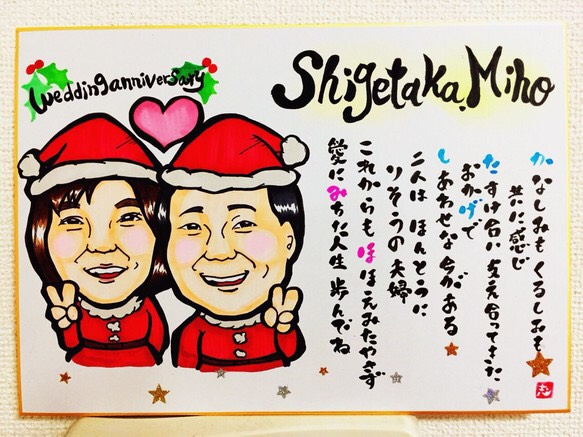 Wedding anniversary
Shigetaka. Miho
かなしみもくるしみも
共に感じ
たすけ合い支え合ってきた
おかげで
しあわせな今がある
二人はほんとうに
りそうの夫婦
これからもほほえみたやさず
愛にみちた人生歩んでね